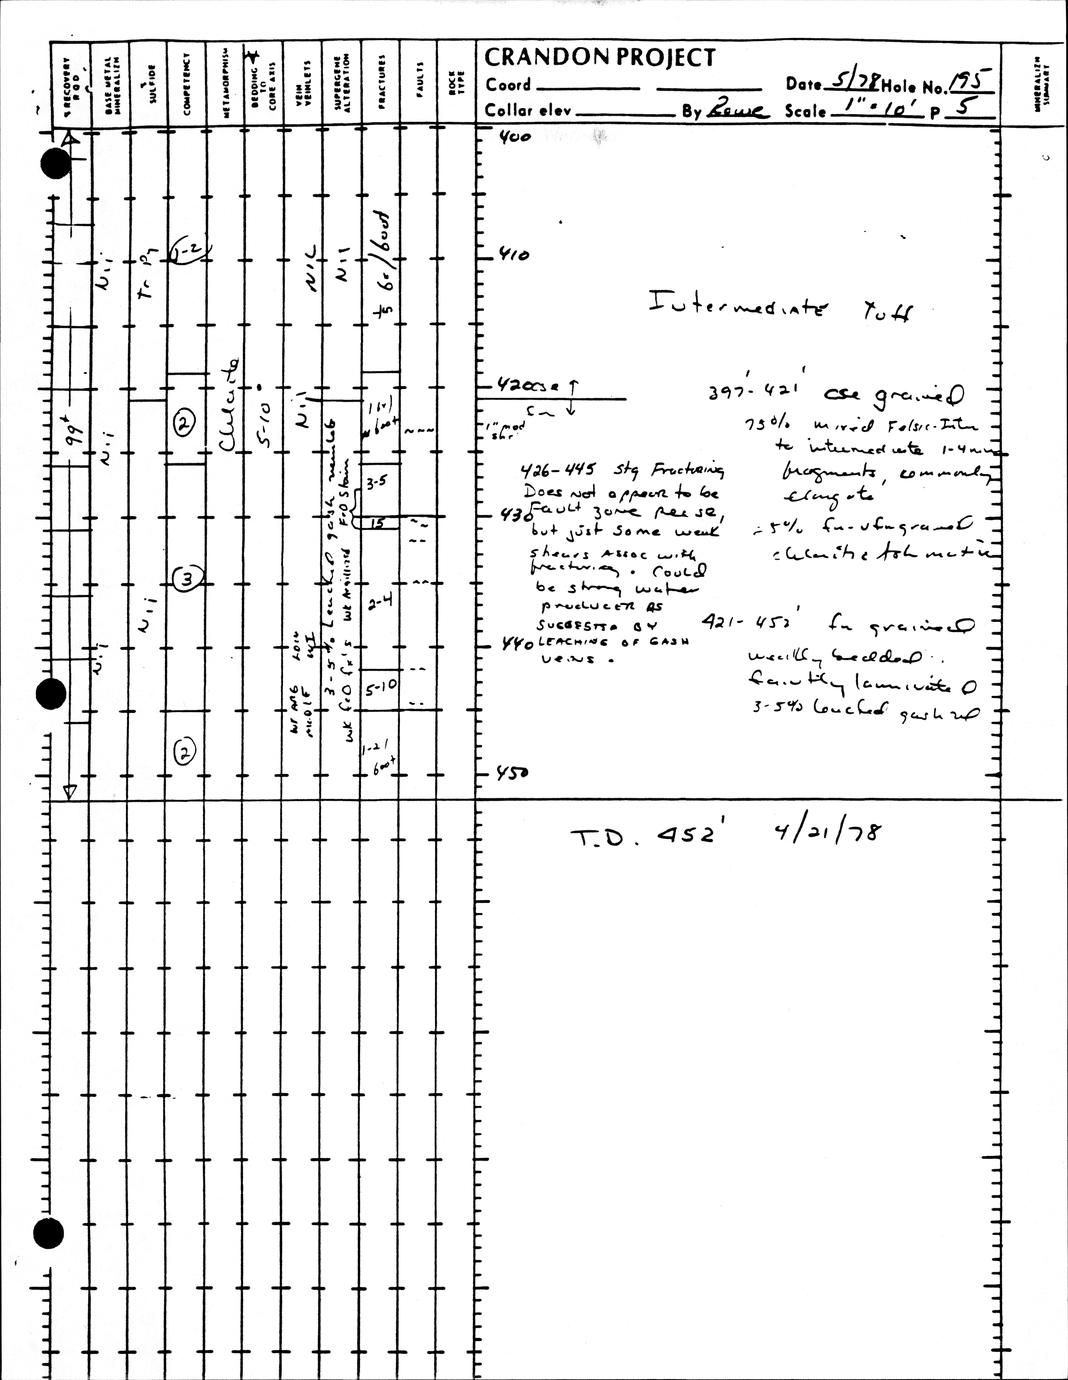 CRANDON PROJECT
Coord
Date 5/78 Hole No. 195
Collar elev
By Rowe Scale 1" = 10' P 5
% RECOVERY
RQD
BASE METAL
MINERALIZN
% SULFIDE
COMPETENCY
METAMORPHISM
BEDDING
TO
CORE AXIS
VEIN
VEINLETS
SUPERGENE
ALTERATION
FRACTURES
FAULTS
ROCK
TYPE
MINERALIZN
SUMMARY
400
410
420
430
440
450
99+
Nil
Nil
Nil
Tr Py
Nil
1-2
2
3
2
Chlorite
5-10°
NIL
Nil
Nil
3-5% Leached gash
FeO Stain
Wk Argillized
Wk FeO fx's
1/5 6"/foot
1/foot
3-5
15
2-4
5-10
1-2/
foot
cse ↑
fn ↓
1" mod
shr
Intermediate Tuff
397'-421' cse grained
75% mixed Felsic-Intm
to intermediate 1-4mm
fragments, commonly
elongate
fn-vfn grained
chloritic Ash matrix
426-445 Stg Fracturing
Does not appear to be
Fault zone per se,
but just some weak
shears Assoc with
fracturing. Could
be strong water
producer AS
SUGGESTED BY
LEACHING OF GASH
VEINS.
421-452' fn grained
weakly bedded
faintly laminated
3-5% leached gash
T.D. 452' 4/21/78